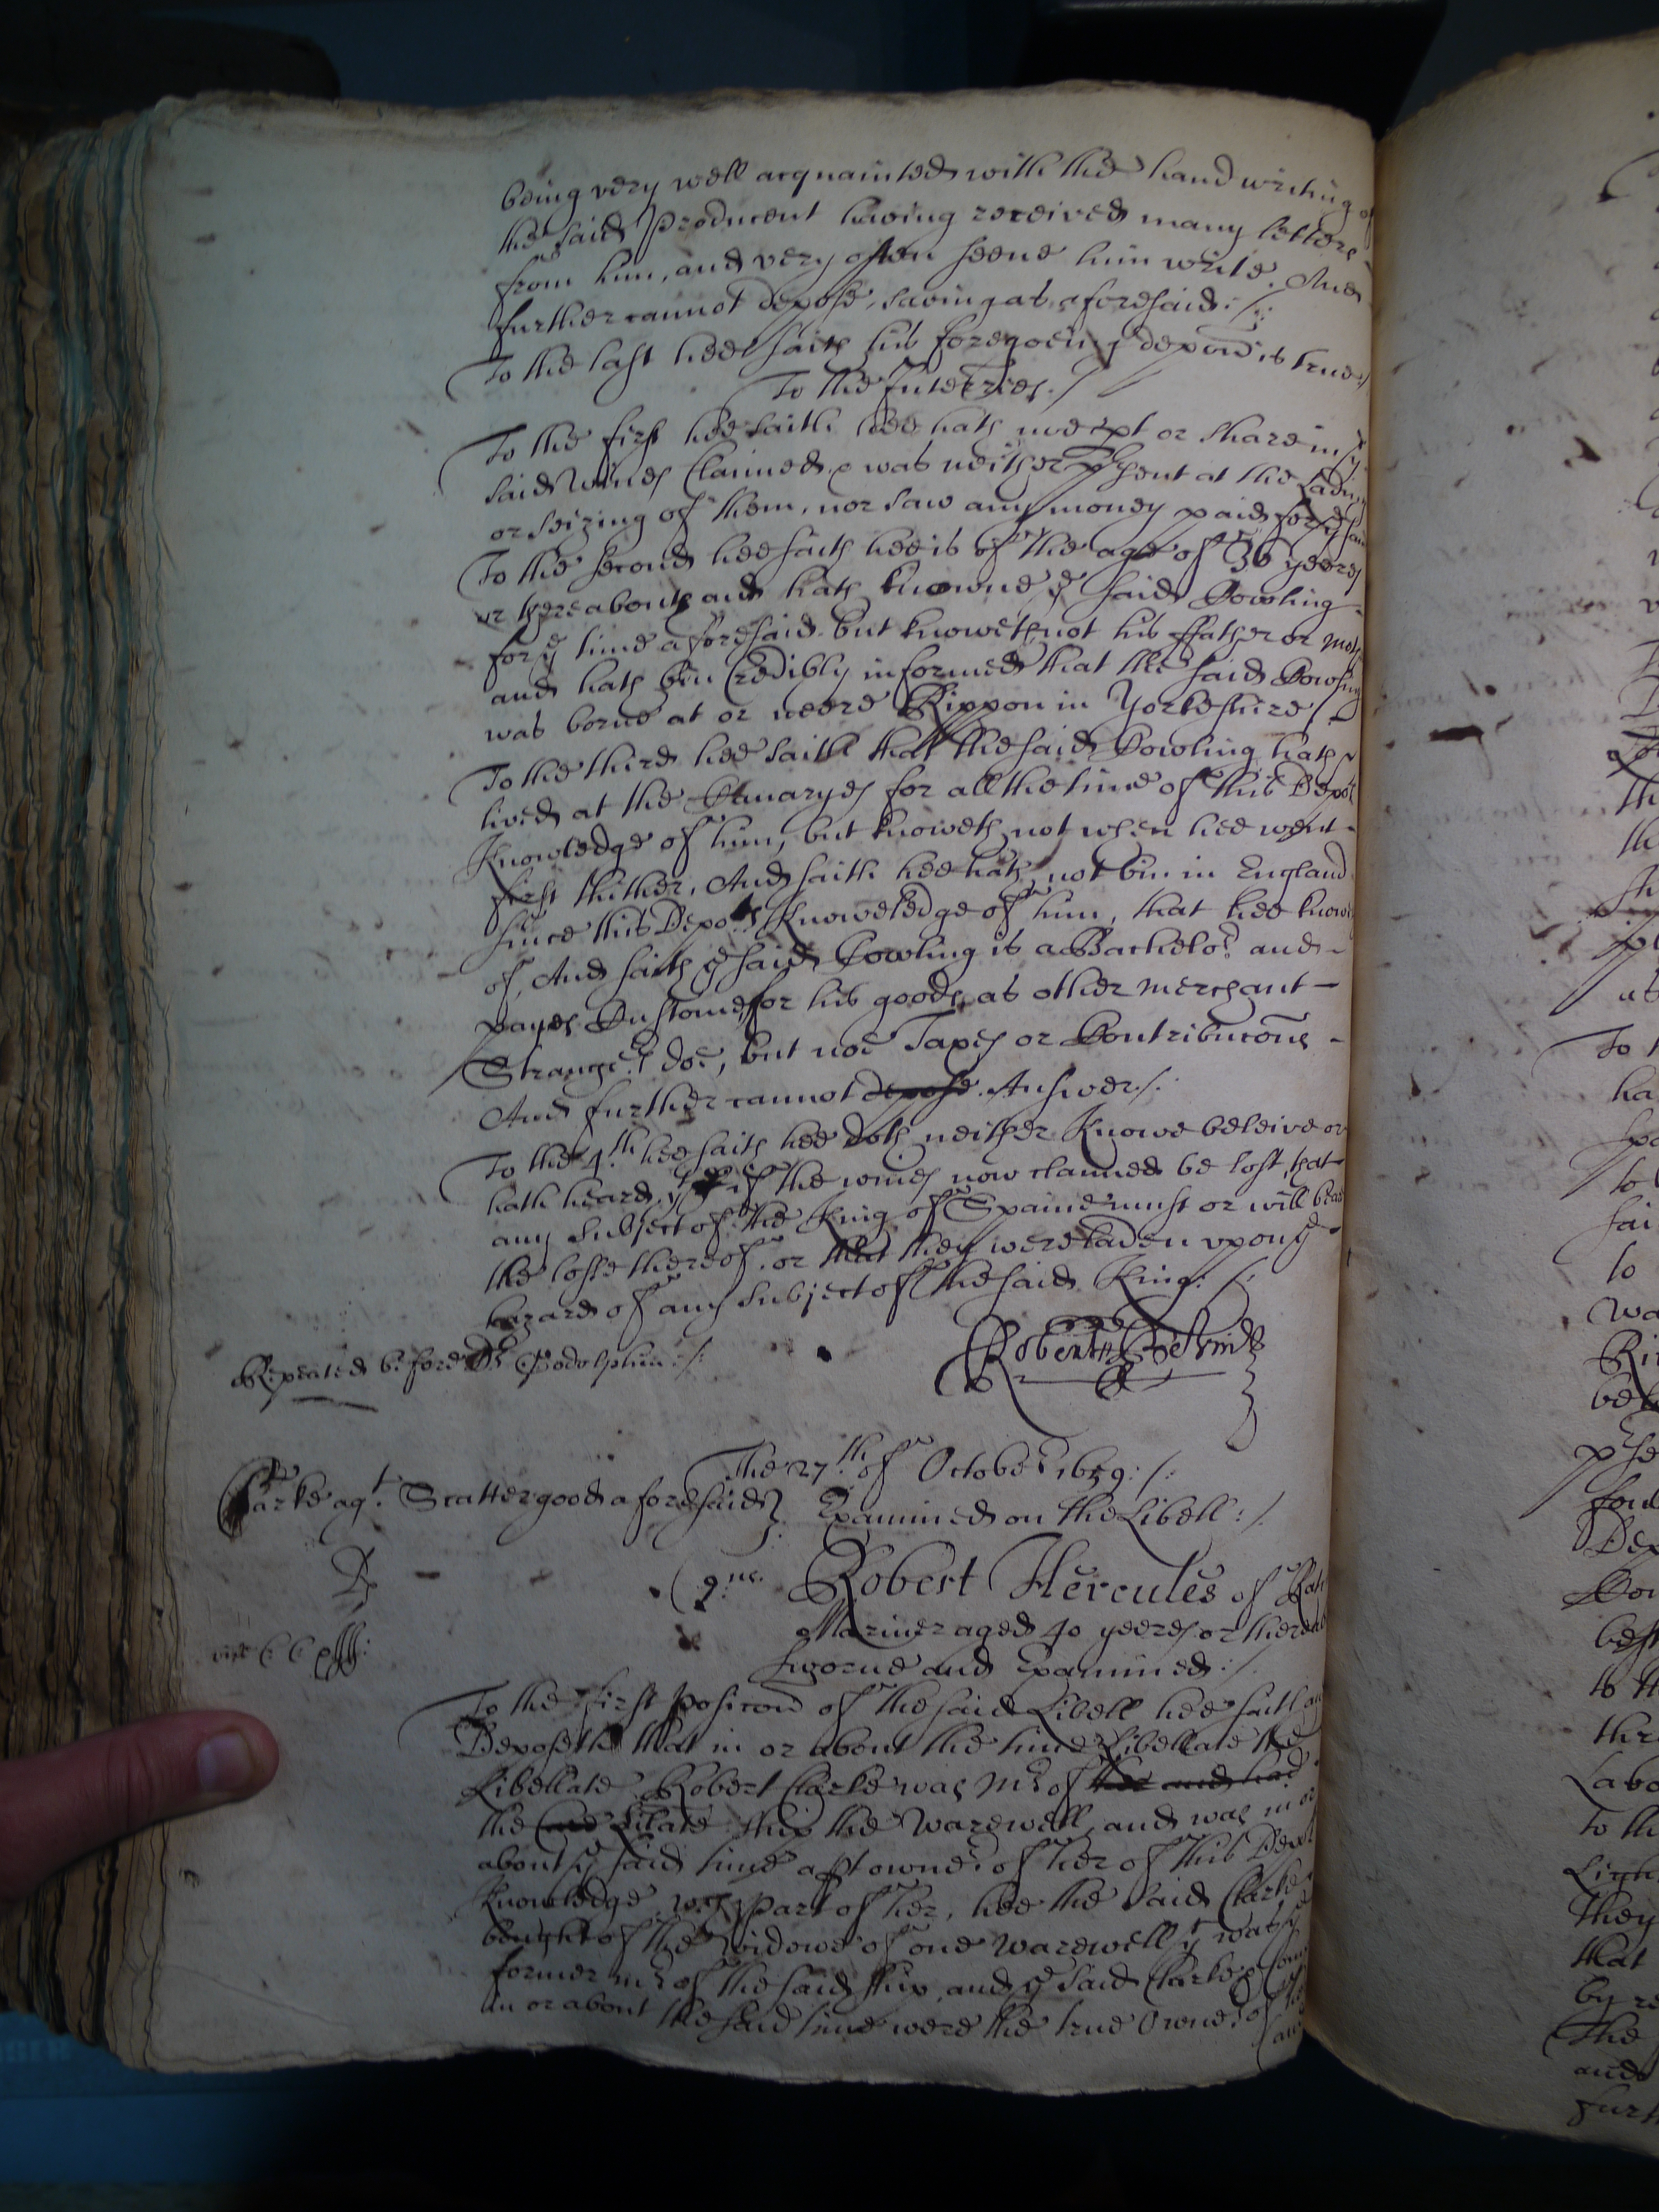 being very well acquainted with the hand writing of
the said Producent having received many letters
from him, and very often seene him write. And
further cannot depose, saving as aforesaid :/:
To the last hee saith his foregoeing depon̄ is true
To the Interries. /
To the first hee saith hee hath noe pt or share in ye
said wines Claimed, & was neither present at the Lading
or seizing of them, nor saw any money paid for ye same
To the second hee saith hee is of the age of 36 yeeres
or thereabouts and hath knowne ye said Cowling
for ye time aforesaid but knoweth not his ffather or moth
and hath bin Credibly informed that the said Cowling
was borne at or neere Rippon in Yorkeshire /
To the third hee saith that the said Cowling hath
lived at the Canaryes for all the time of this Depots
Knowledge of him, but knoweth not when hee went
first thither, And saith hee hath not bin in England
since this Depots Knowledge of him, that hee knowes
of, And saith ye said Cowling is a Bachelor and
payes Custome for his goods as other merchant
Strangers doe, but noe Taxes or Contribucons
And further cannot depose Answer /.
To the 4th hee saith hee doth neither Knowe beleive or
hath heard, yt if the wines now claimed be lost, that
any subject of the King of Spaine must or will beare
the losse thereof, or that they were laden upon ye
hazard of any subject of the said King: /:
Repeated before Dr Godolphin :/:
Robert
The 27th of October 1659 :/:
Clarke agt. Scattergood aforesaid
Examined on the Libell :/.
Robert Hercules of
Mariner aged 40 yeeres or thereab
sworne and Examined :/.
To the first posicon of the said Libell hee saith and
Deposeth that in or about the time Libellate the
Libellate Robert Clarke was Mr of
the ship the Warewell, and was in or
about ye said time a pt owner of her of this Depots
Knowledge, wch part of her, hee the said Clarke
bought of the widowe of one Warewell yt was ye
former mr of the said ship, and ye said Clarke &
in or about the said time were the true Owners of the